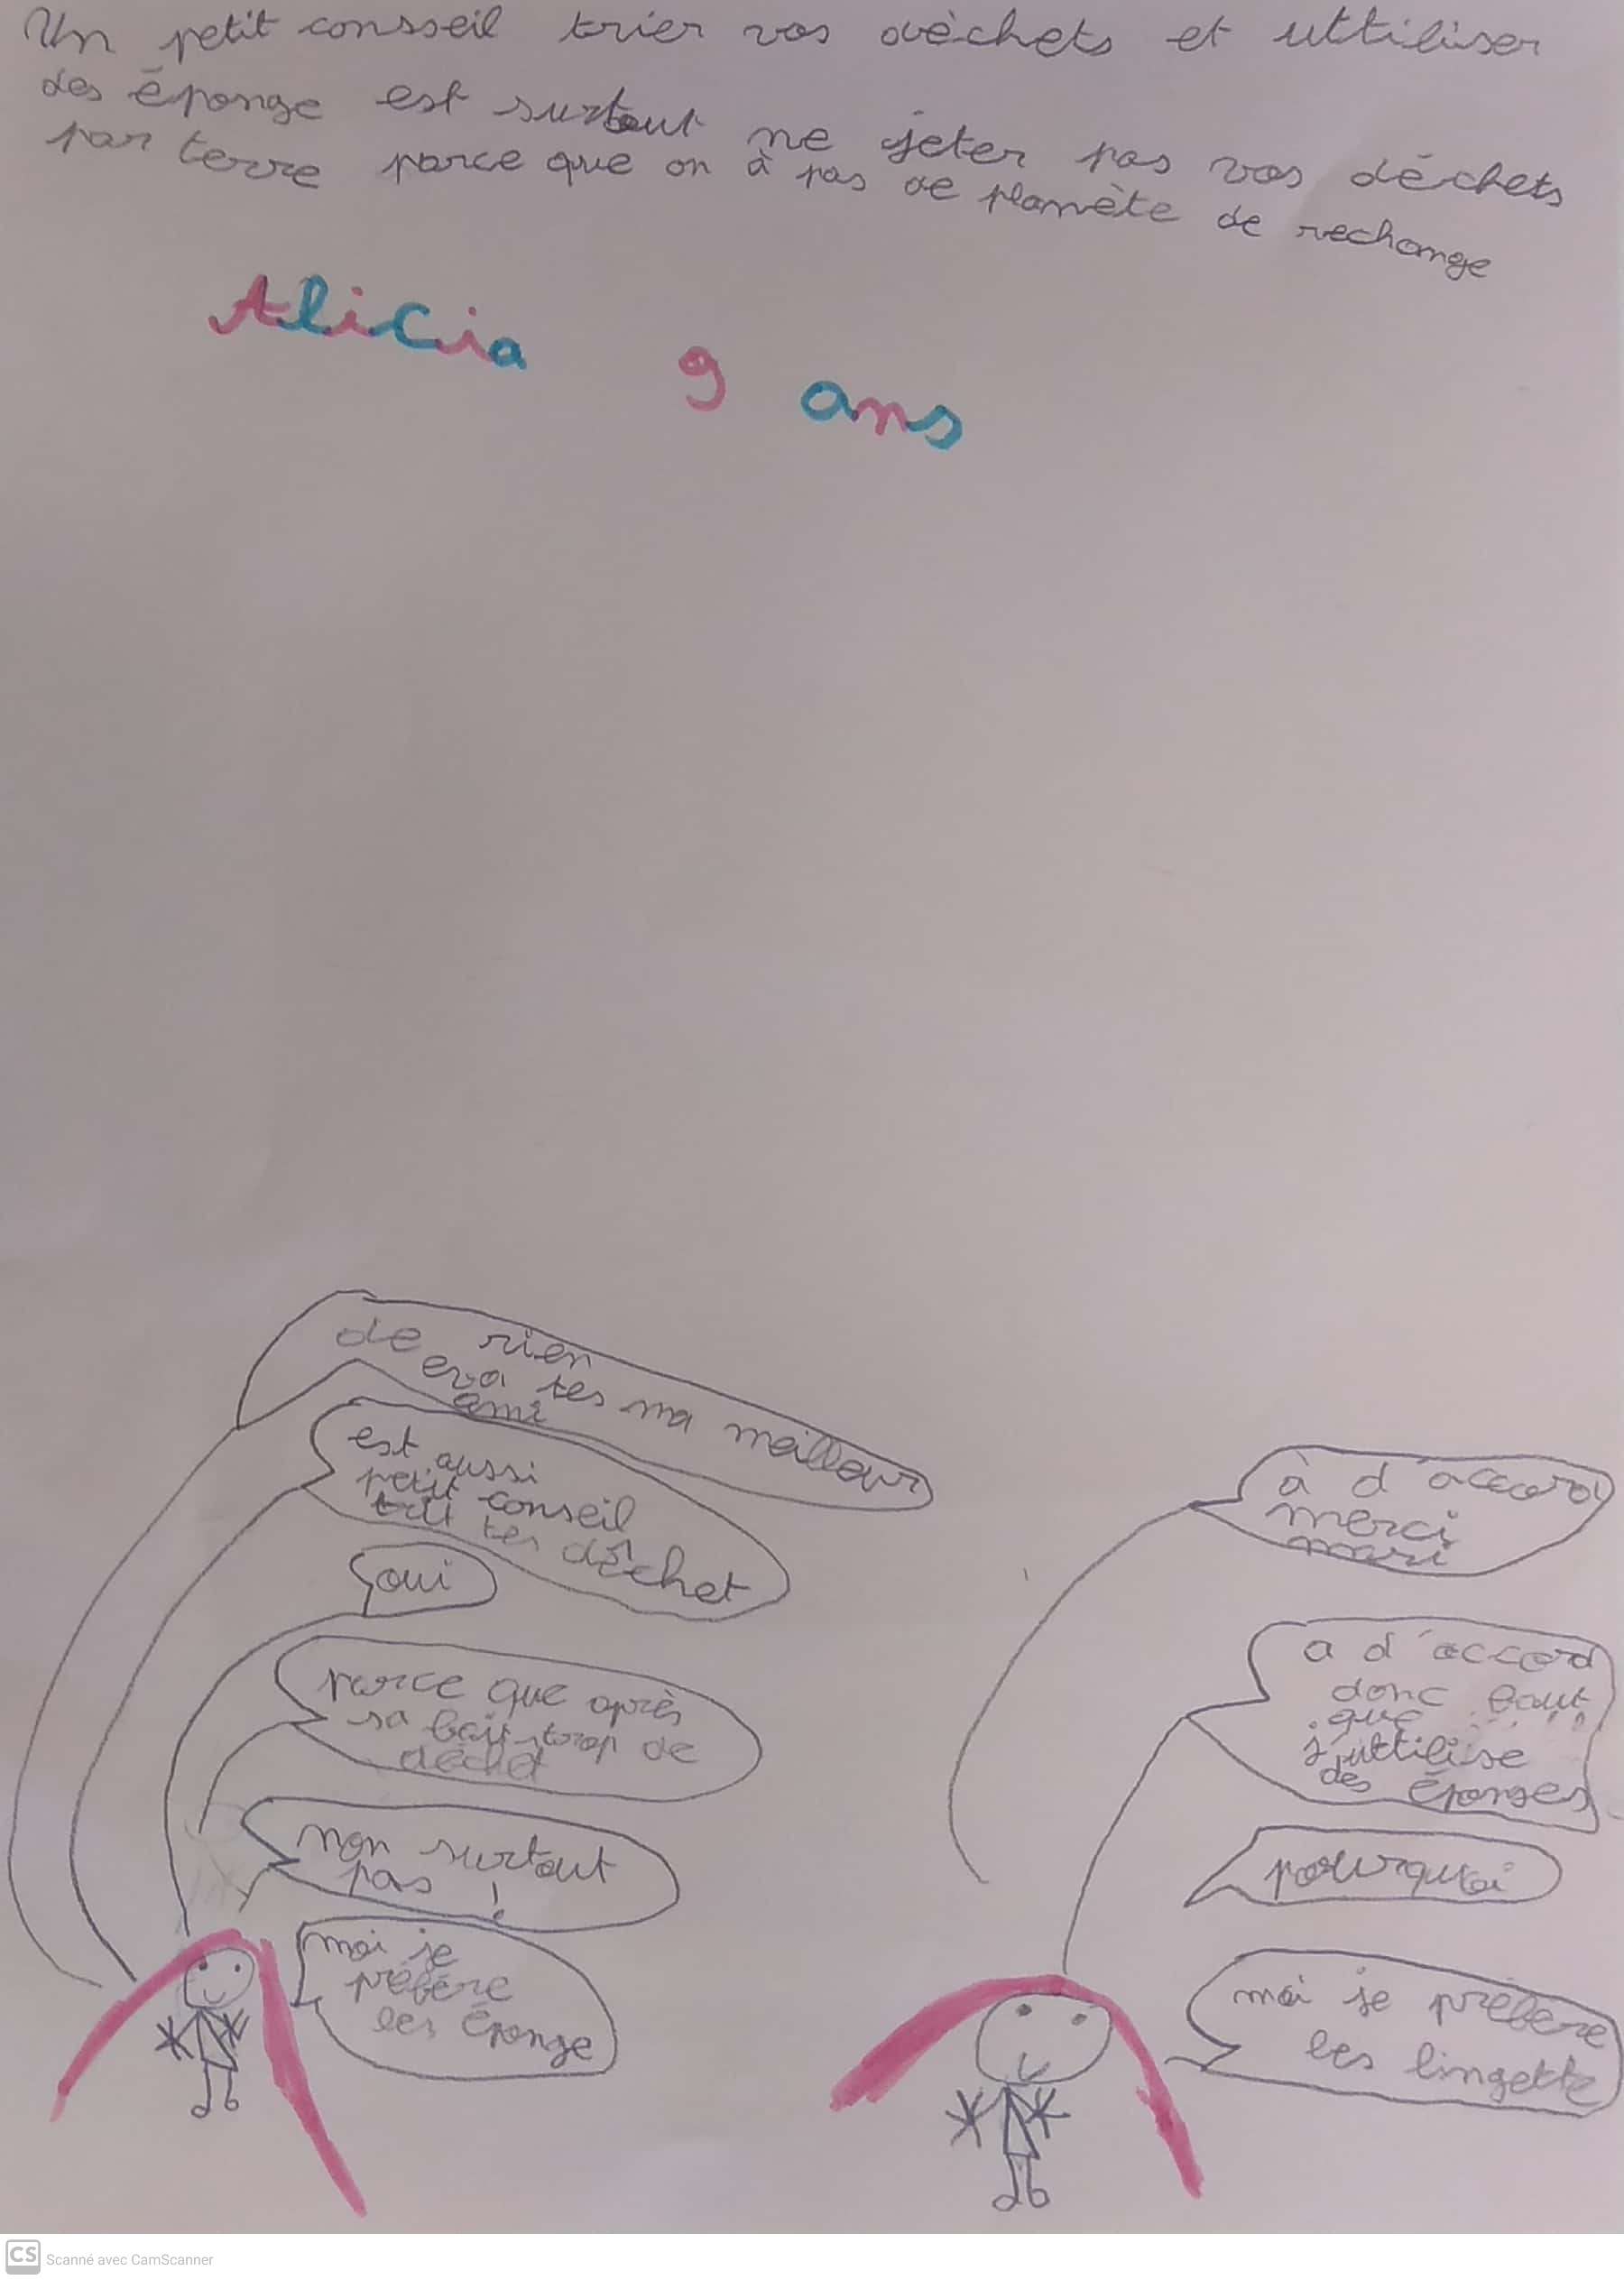 Un petit consseil trier vos dèchets et uttiliser
des éponge est surtout ne jeter pas vos déchets
par terre parce que on à pas de planète de rechange
Alicia 9 ans
de rien
eva tes ma meilleur
ami
est aussi
petit conseil
tes déchet
oui
parce que après
sa fait trop de
déchet
non surtout
pas !
moi je
préfére
les éponge
à d'accord
merci
mari
a d'accord
donc faut
que
j'uttilise
des éponges
pourquoi
moi je préfére
les lingette
CS Scanné avec CamScanner